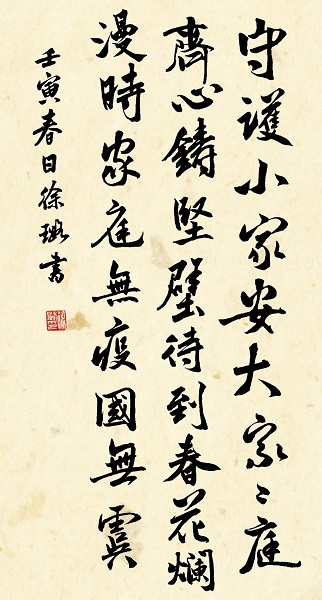 守護小家安大家々庭
齊心鑄堅壁待到春花爛
漫時家庭無疫國無虞
壬寅春日徐璐書